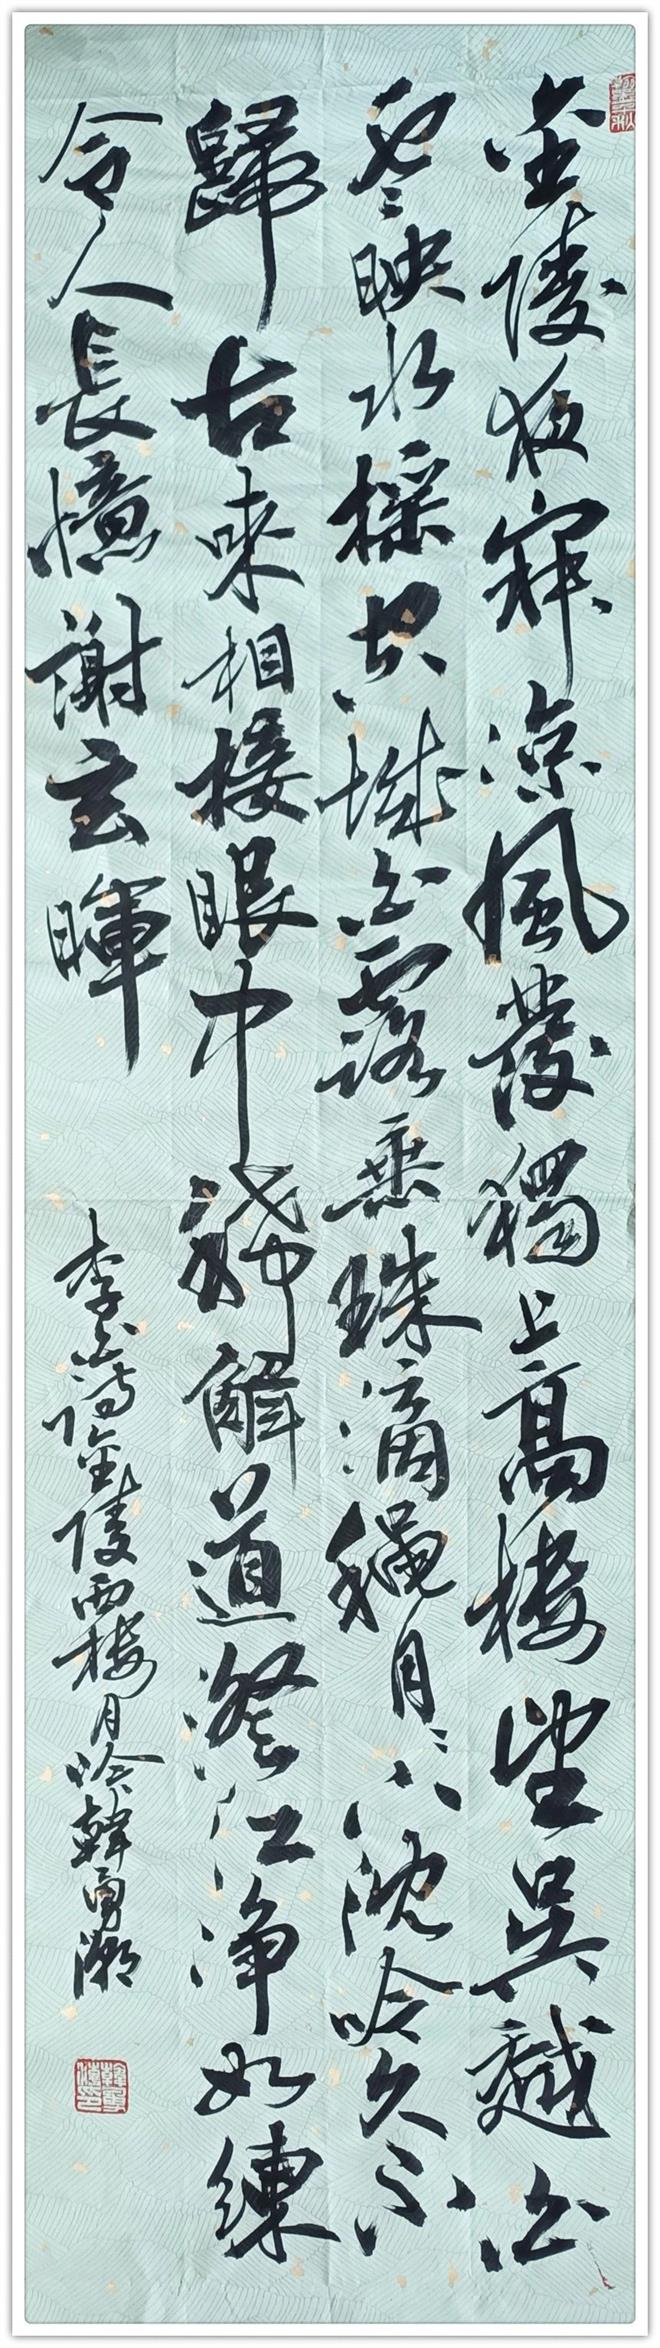 金陵夜寂涼風發獨上高樓望吳越白
雲映水摇空城白露垂珠滴穐月々下沈吟久不
歸古來相接眼中稀解道澄江净如練
令人長憶謝玄暉
李白詩金陵西樓月吟韓勇